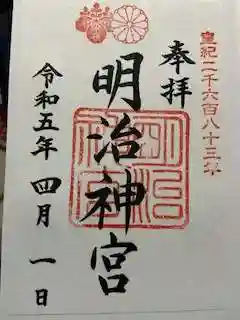 皇紀二千六百八十三年
奉拝
明治神宮
令和五年四月一日
明治神宮